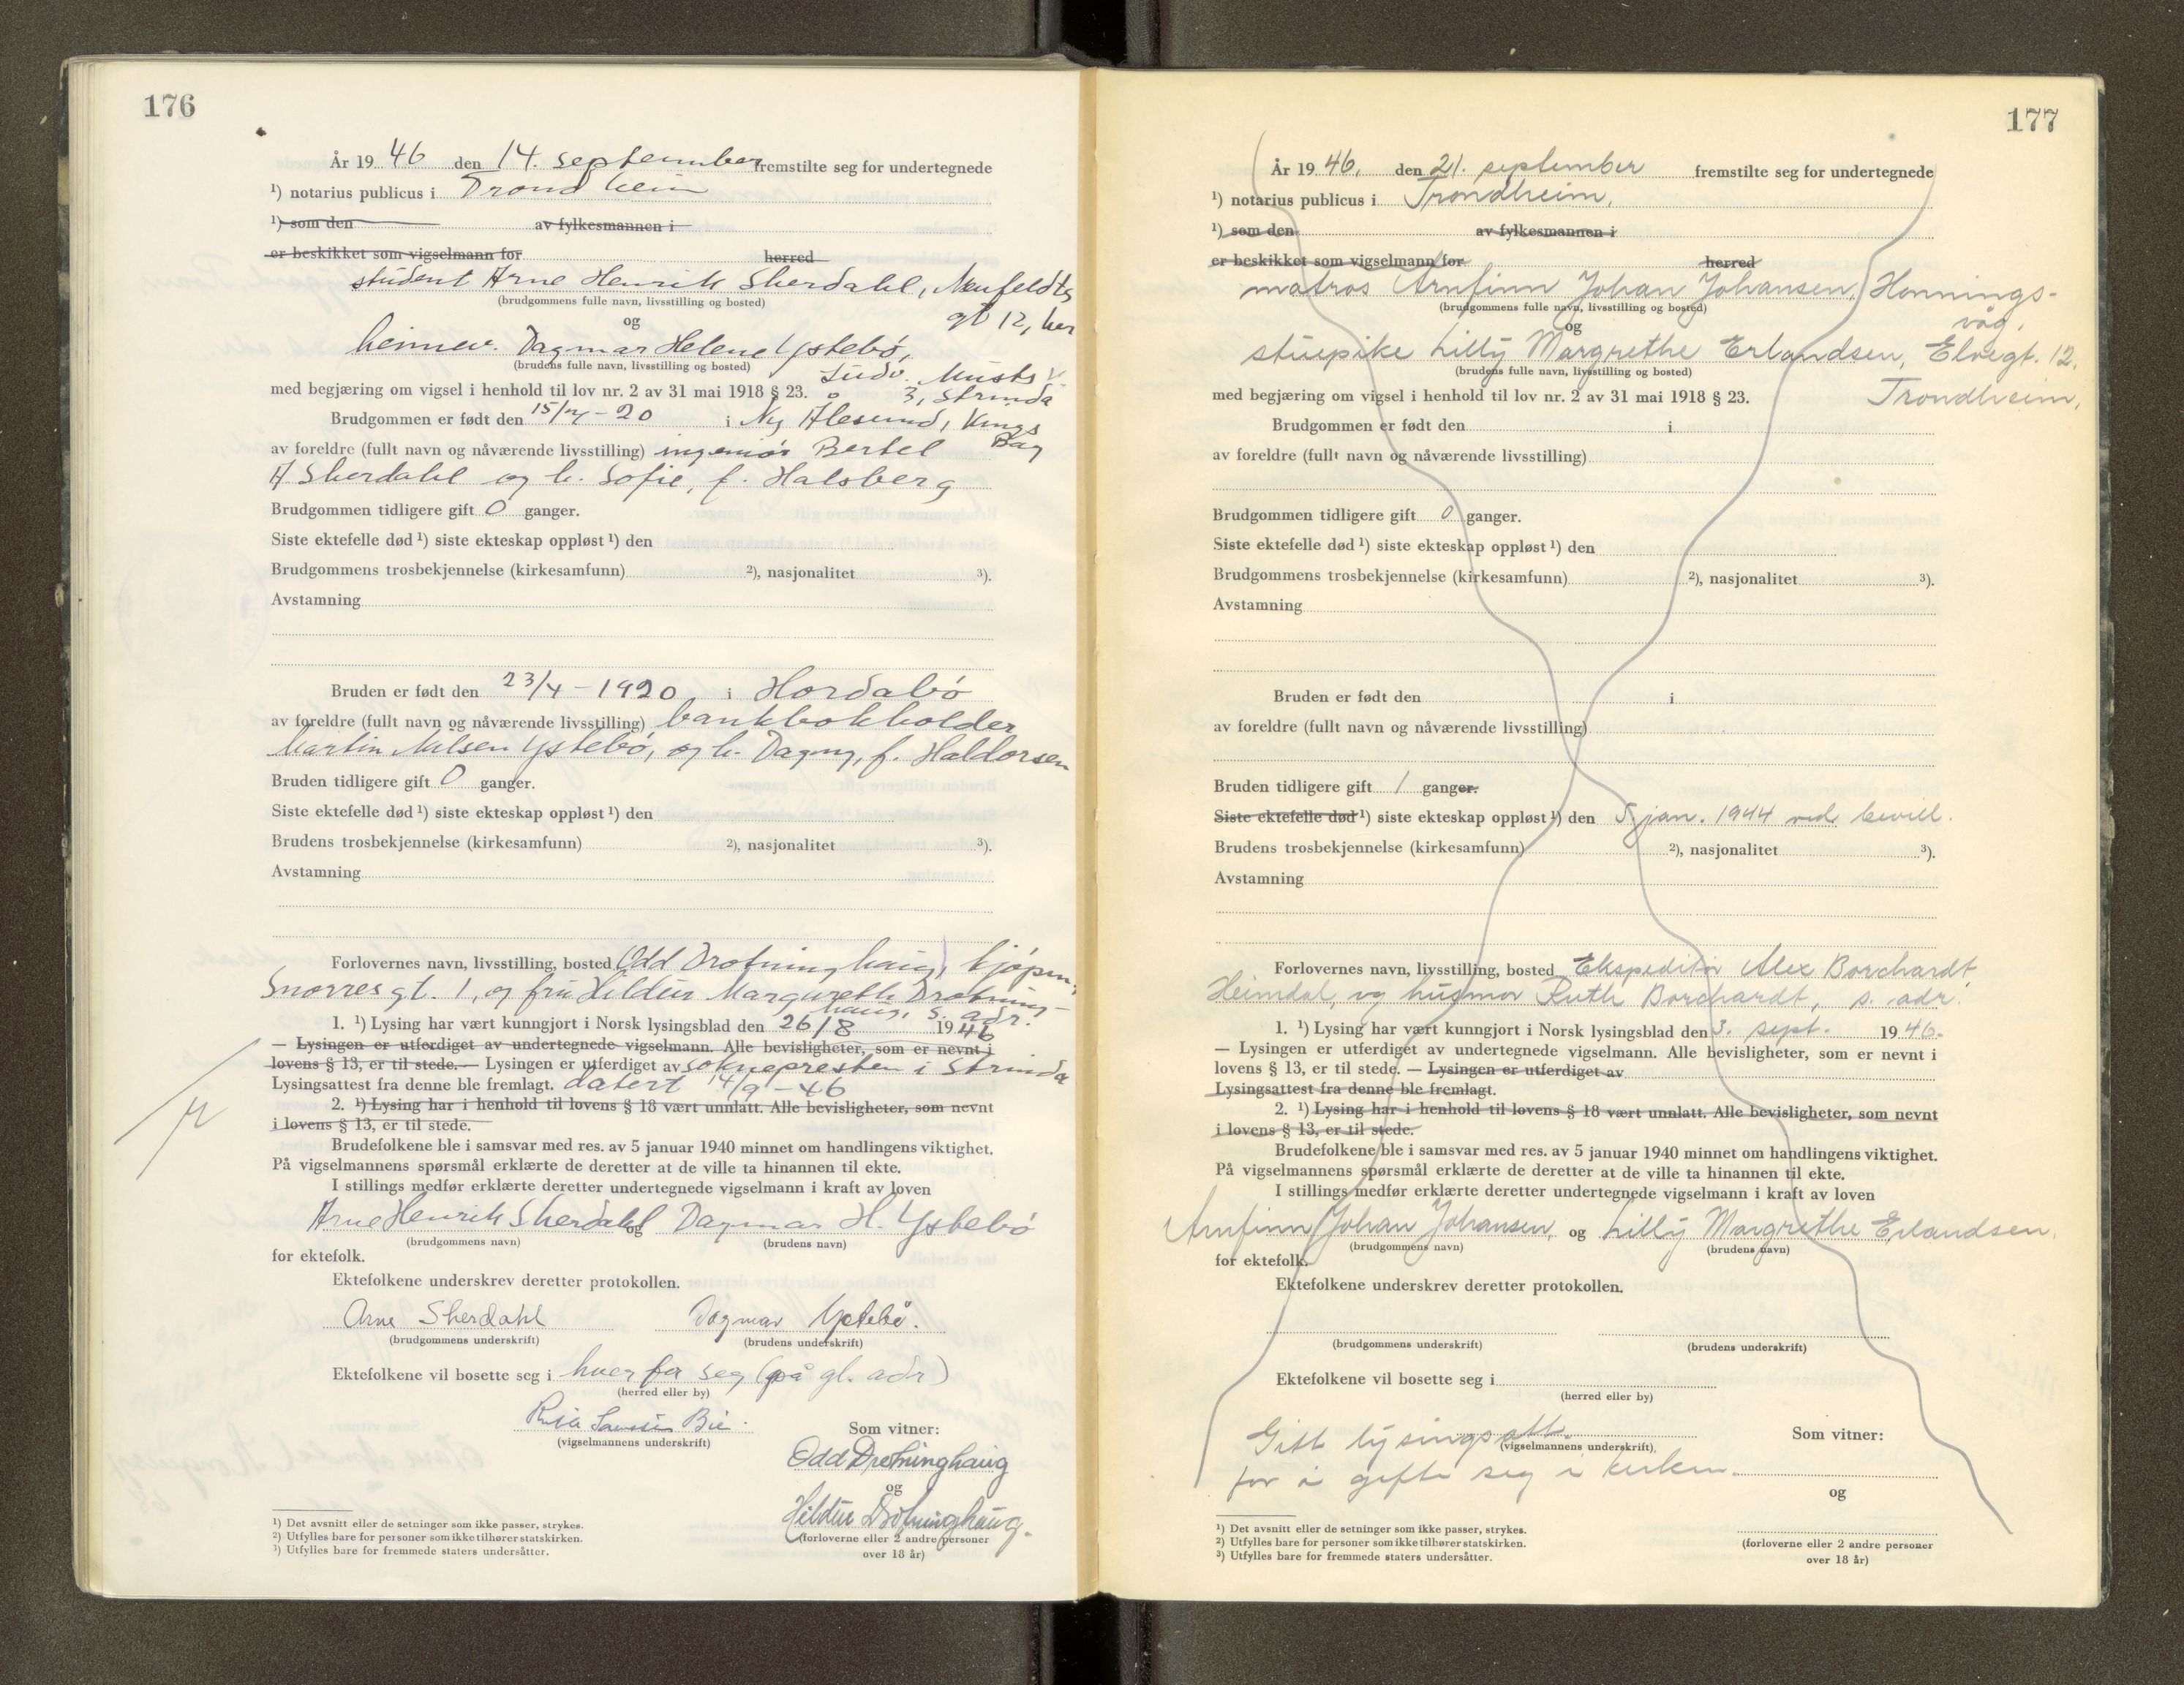 176
År 1946 den 14. september fremstilte seg for undertegnede
¹) notarius publicus i Trondheim
¹) som den av fylkesmannen i
er beskikket som vigselmann for herred
student Arne Henrik Sherdahl, Neufeldts
(brudgommens fulle navn, livsstilling og bosted)
gt 12, her
og
heimev. Dagmar Helene Ystebø,
(brudens fulle navn, livsstilling og bosted)
Ludv. Musts v.
med begjæring om vigsel i henhold til lov nr. 2 av 31 mai 1918 § 23. 3, Strinda
Brudgommen er født den 15/4 - 20 i Ny Ålesund, Kings
Bay
av foreldre (fullt navn og nåværende livsstilling) ingeniør Bertel
A Sherdahl og h. Sofie, f. Halsberg
Brudgommen tidligere gift 0 ganger.
Siste ektefelle død ¹) siste ekteskap oppløst ¹) den
Brudgommens trosbekjennelse (kirkesamfunn) ²), nasjonalitet ³).
Avstamning
Bruden er født den 23/4 - 1920 i Hordabø
av foreldre (fullt navn og nåværende livsstilling) bankbokholder
Martin Nilsen Ystebø, og h. Dagny, f. Haldorsen
Bruden tidligere gift 0 ganger.
Siste ektefelle død ¹) siste ekteskap oppløst ¹) den
Brudens trosbekjennelse (kirkesamfunn) ²), nasjonalitet ³).
Avstamning
Forlovernes navn, livsstilling, bosted Odd Drotninghaug, kjøpm.,
Snorres gt. 1, og fru Hildur Margareth Drotning-
haug, s. adr.
1. ¹) Lysing har vært kunngjort i Norsk lysingsblad den 26/8 1946
— Lysingen er utferdiget av undertegnede vigselmann. Alle bevisligheter, som er nevnt i
lovens § 13, er til stede. — Lysingen er utferdiget av soknepresten i Strinda
Lysingsattest fra denne ble fremlagt. datert 14/9 - 46
2. ¹) Lysing har i henhold til lovens § 18 vært unnlatt. Alle bevisligheter, som nevnt
i lovens § 13, er til stede.
Brudefolkene ble i samsvar med res. av 5 januar 1940 minnet om handlingens viktighet.
På vigselmannens spørsmål erklærte de deretter at de ville ta hinannen til ekte.
I stillings medfør erklærte deretter undertegnede vigselmann i kraft av loven
Arne Henrik Sherdahl og Dagmar H. Ystebø
(brudgommens navn) (brudens navn)
for ektefolk.
Ektefolkene underskrev deretter protokollen.
Arne Sherdahl Dagmar Ystebø.
(brudgommens underskrift) (brudens underskrift)
Ektefolkene vil bosette seg i hver for seg (på gl. adr)
(herred eller by)
(vigselmannens underskrift)
Som vitner:
Odd Drotninghaug
og
Hildur Drotninghaug.
(forloverne eller 2 andre personer
over 18 år)
¹) Det avsnitt eller de setninger som ikke passer, strykes.
²) Utfylles bare for personer som ikke tilhører statskirken.
³) Utfylles bare for fremmede staters undersåtter.
177
År 1946, den 21. september fremstilte seg for undertegnede
¹) notarius publicus i Trondheim,
¹) som den av fylkesmannen i
er beskikket som vigselmann for herred
matros Arnfinn Johan Johansen, Honnings-
(brudgommens fulle navn, livsstilling og bosted)
våg,
og
stuepike Lilly Margrethe Erlandsen, Elvegt. 12,
(brudens fulle navn, livsstilling og bosted)
med begjæring om vigsel i henhold til lov nr. 2 av 31 mai 1918 § 23. Trondheim,
Brudgommen er født den i
av foreldre (fullt navn og nåværende livsstilling)
Brudgommen tidligere gift 0 ganger.
Siste ektefelle død ¹) siste ekteskap oppløst ¹) den
Brudgommens trosbekjennelse (kirkesamfunn) ²), nasjonalitet ³).
Avstamning
Bruden er født den i
av foreldre (fullt navn og nåværende livsstilling)
Bruden tidligere gift 1 ganger.
Siste ektefelle død ¹) siste ekteskap oppløst ¹) den 5 jan. 1944 ved bevill.
Brudens trosbekjennelse (kirkesamfunn) ²), nasjonalitet ³).
Avstamning
Forlovernes navn, livsstilling, bosted Ekspeditør Alex Borchardt
Heimdal, og husmor Ruth Borchardt, s. adr.
1. ¹) Lysing har vært kunngjort i Norsk lysingsblad den 3. sept. 1946.
— Lysingen er utferdiget av undertegnede vigselmann. Alle bevisligheter, som er nevnt i
lovens § 13, er til stede. — Lysingen er utferdiget av
Lysingsattest fra denne ble fremlagt.
2. ¹) Lysing har i henhold til lovens § 18 vært unnlatt. Alle bevisligheter, som nevnt
i lovens § 13, er til stede.
Brudefolkene ble i samsvar med res. av 5 januar 1940 minnet om handlingens viktighet.
På vigselmannens spørsmål erklærte de deretter at de ville ta hinannen til ekte.
I stillings medfør erklærte deretter undertegnede vigselmann i kraft av loven
Arnfinn Johan Johansen, og Lilly Margrethe Erlandsen,
(brudgommens navn) (brudens navn)
for ektefolk.
Ektefolkene underskrev deretter protokollen.
(brudgommens underskrift) (brudens underskrift)
Ektefolkene vil bosette seg i
(herred eller by)
Gitt lysingsatt.
(vigselmannens underskrift)
Som vitner:
for å gifte seg i kirken.
og
(forloverne eller 2 andre personer
over 18 år)
¹) Det avsnitt eller de setninger som ikke passer, strykes.
²) Utfylles bare for personer som ikke tilhører statskirken.
³) Utfylles bare for fremmede staters undersåtter.